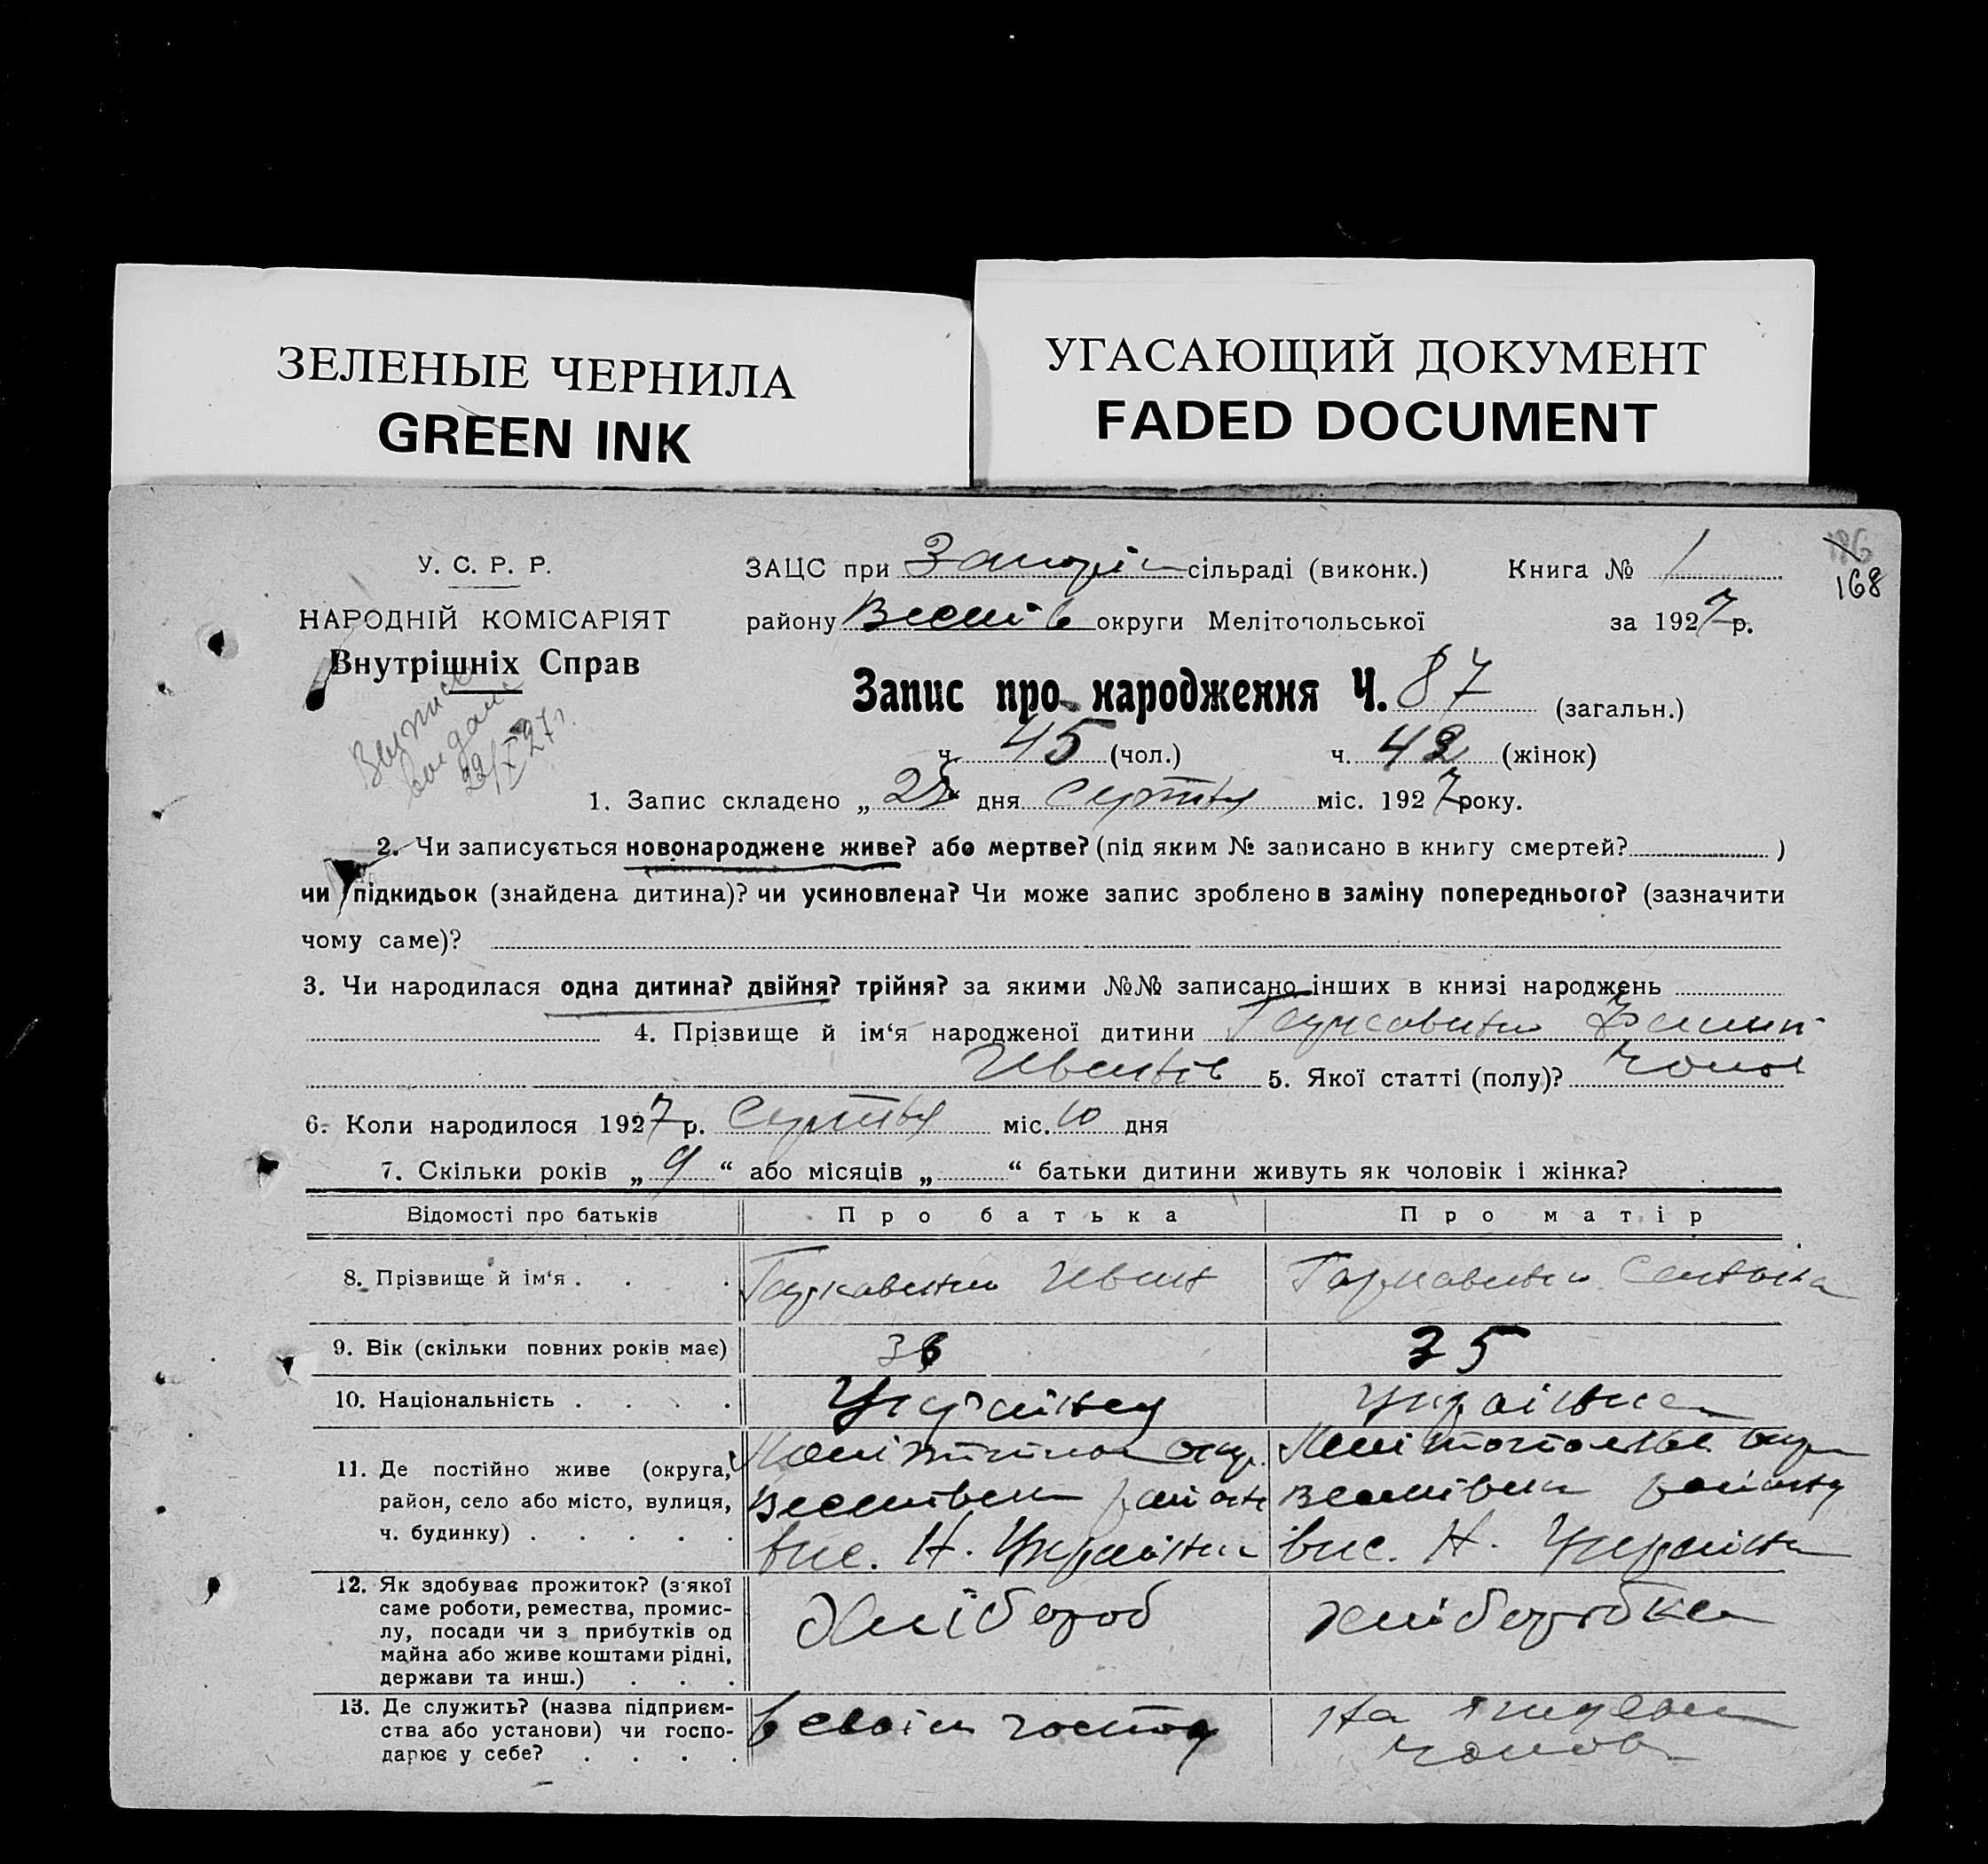 ЗЕЛЕНЫЕ ЧЕРНИЛА
GREEN INK
УГАСАЮЩИЙ ДОКУМЕНТ
FADED DOCUMENT
168
У. С. Р. Р.
НАРОДНІЙ КОМІСАРІЯТ
Внутрішніх Справ
ЗАЦС при сільраді (виконк.) Книга № 1
району Веселів округи Мелітопольської за 1927 р.
Запис про народження Ч. 87 (загальн.)
ч. 45 (чол.) ч. 42 (жінок)
22/X 27 г.
1. Запис складено „ дня Серпня міс. 1927 року.
2. Чи записується новонароджене живе? або мертве? (під яким № записано в книгу смертей? )
чи підкидьок (знайдена дитина)? чи усиновлена? Чи може запис зроблено в заміну попереднього? (зазначити
чому саме)?
3. Чи народилася одна дитина? двійня? трійня? за якими №№ записано інших в книзі народжень
4. Прізвище й ім‘я народженої дитини
5. Якої статті (полу)? Чолов
6. Коли народилося 1927 р. Серпня міс. 10 дня
7. Скільки років „ 9 “ або місяців „ “ батьки дитини живуть як чоловік і жінка?
Відомості про батьків Про батька Про матір
8. Прізвище й ім‘я . . . Іван
9. Вік (скільки повних років має) 35
10. Національність . . . . Українец Українка
11. Де постійно живе (округа, окр. Мелітопольськ окр
район, село або місто, вулиця, Веселівськ району Веселівськ району
ч. будинку) . . . . . вис. Н. Українка вис. Н. Українка
12. Як здобуває прожиток? (з якої
саме роботи, ремества, промис-
лу, посади чи з прибутків од Хлібороб хліборобка
майна або живе коштами рідні,
держави та инш.) . . .
13. Де служить? (назва підприєм-
ства або установи) чи госпо- в своїм господ На
дарює у себе? . . . . чолов